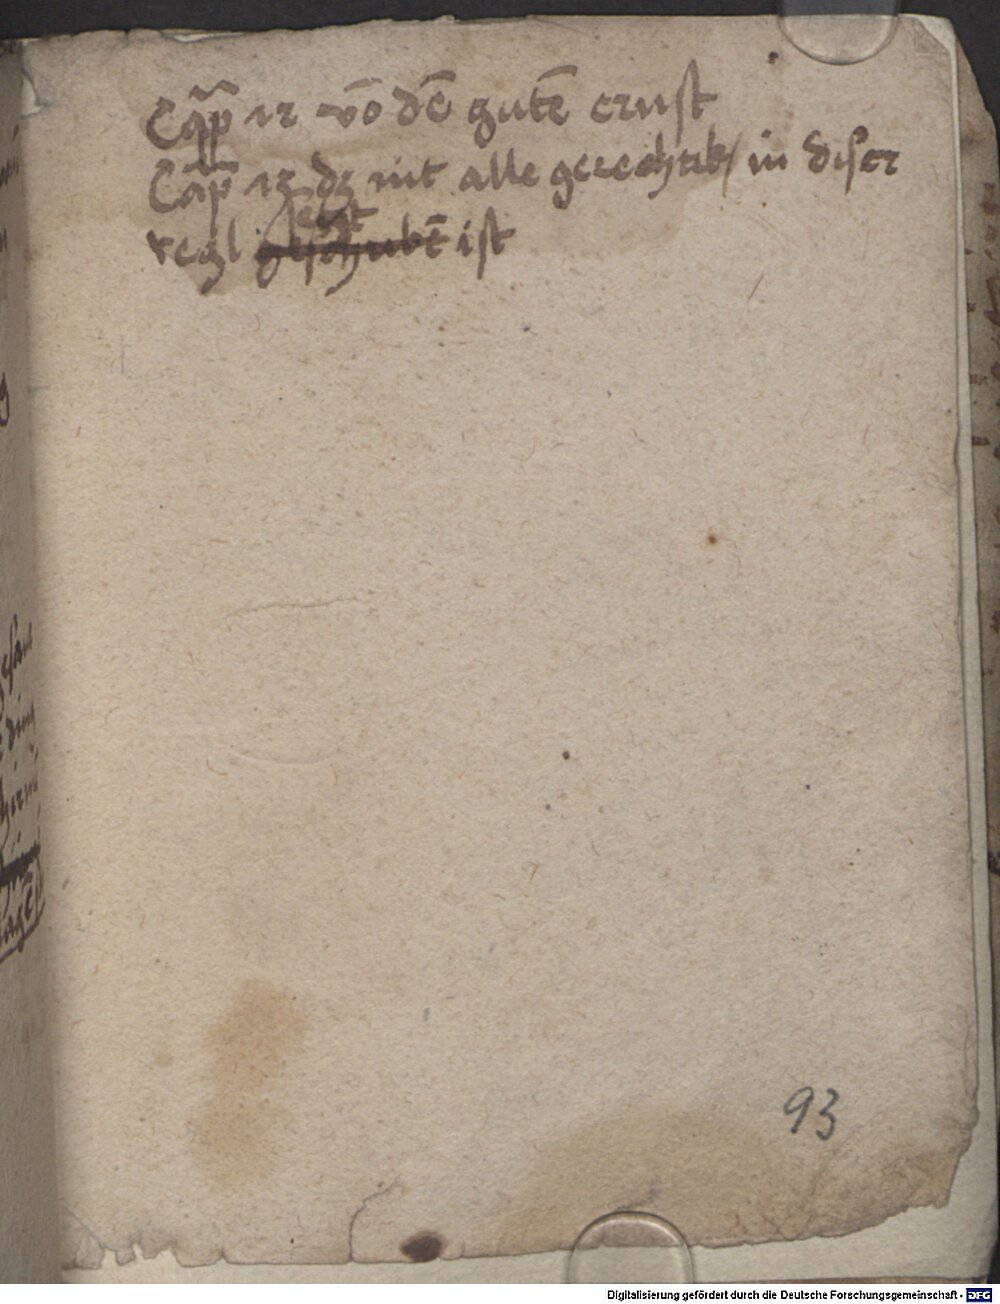 Capp̃ 12 vō dē gutē ernst
Cap̃ 13 dz nit alle gerechtik/ in diser
seczt
regl geschribē ist
93
Digitalisierung gefördert durch die Deutsche Forschungsgemeinschaft - DFG